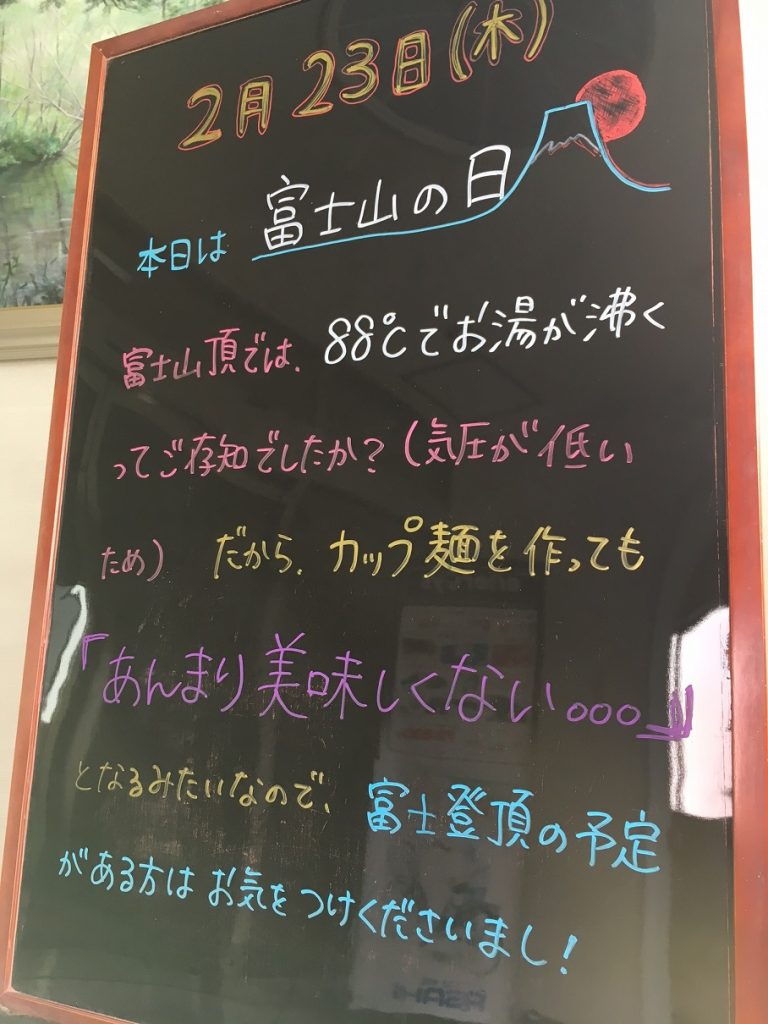 2月23日(木)
本日は 富士山の日
富士山頂では、88℃でお湯が沸く
ってご存知でしたか?(気圧が低い
ため) だから、カップ麺を作っても
「あんまり美味しくない。。。」
となるみたいなので、富士登頂の予定
がある方はお気をつけくださいまし!